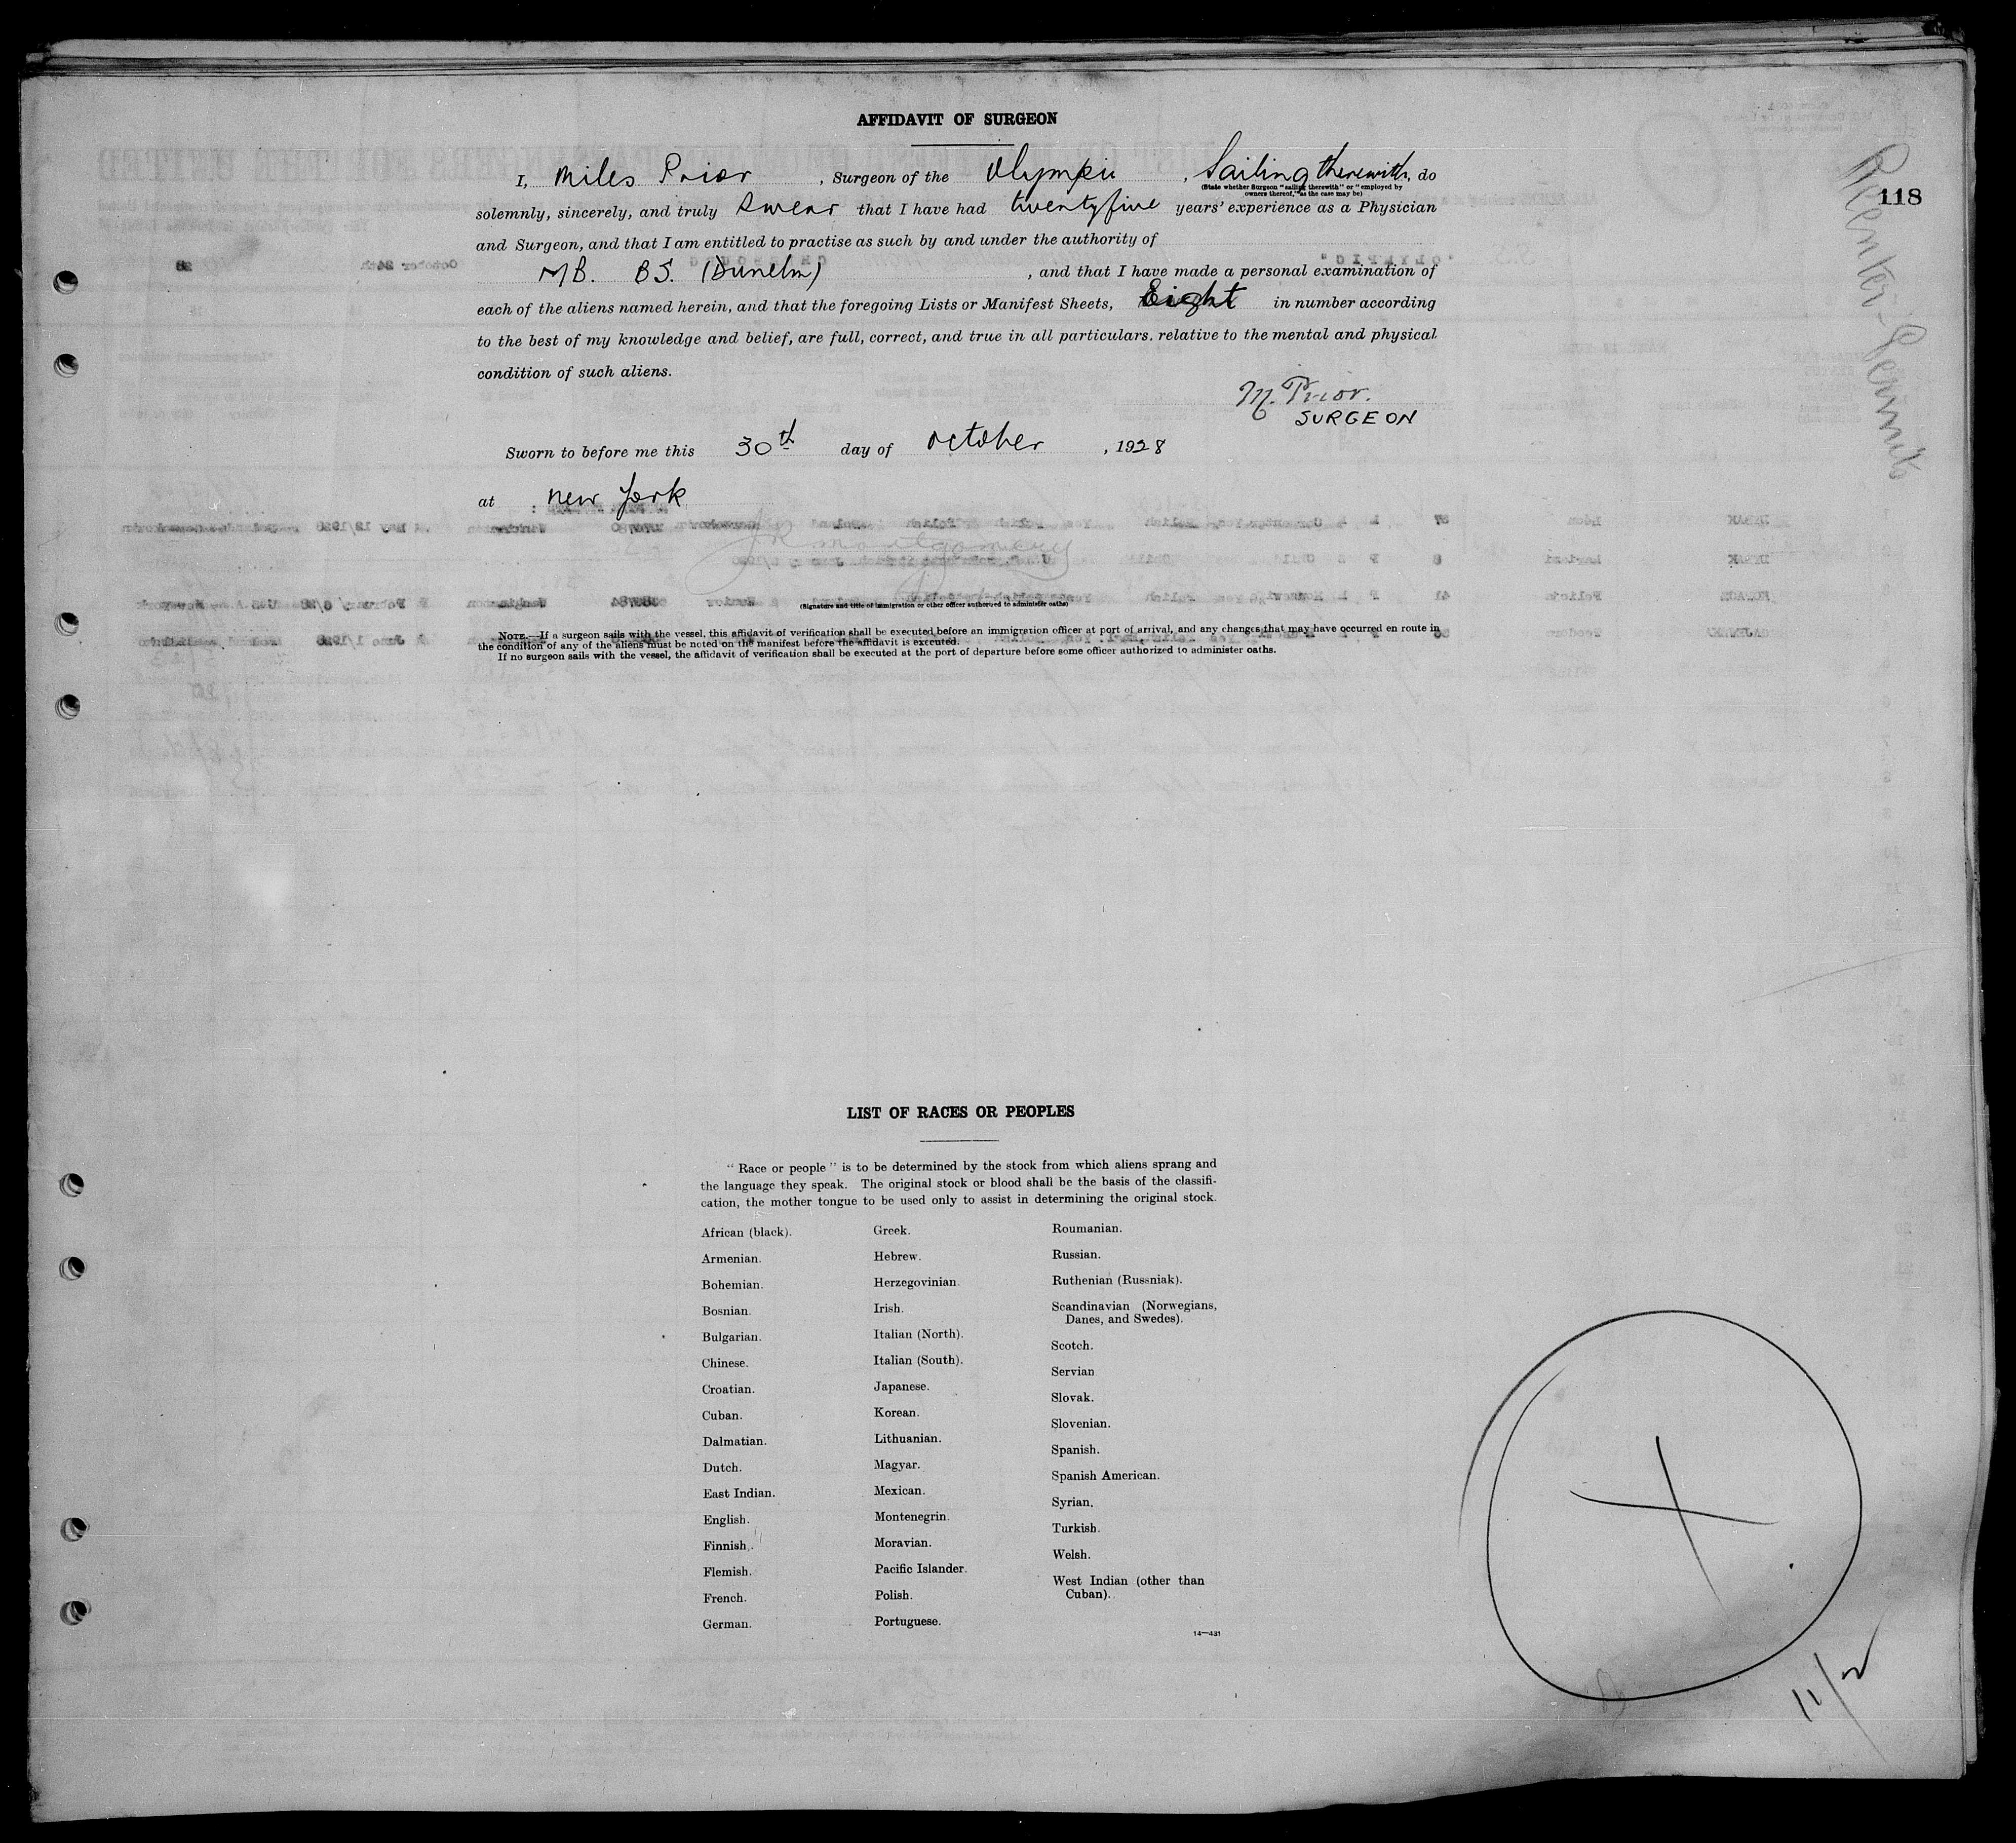 AFFIDAVIT OF SURGEON
I, Miles Prior, Surgeon of the Olympic, Sailing therewith, do
(State whether Surgeon "sailing therewith" or "employed by
owners thereof," as the case may be)
solemnly, sincerely, and truly Swear that I have had twentyfive years' experience as a Physician
and Surgeon, and that I am entitled to practise as such by and under the authority of
MB. BS. (Dunelm), and that I have made a personal examination of
each of the aliens named herein, and that the foregoing Lists or Manifest Sheets, Eight in number according
to the best of my knowledge and belief, are full, correct, and true in all particulars. relative to the mental and physical
condition of such aliens.
M. Prior.
SURGEON
Sworn to before me this 30th day of October, 1928
at New York
(Signature and title of immigration or other officer authorized to administer oaths)
NOTE.—If a surgeon sails with the vessel, this affidavit of verification shall be executed before an immigration officer at port of arrival, and any changes that may have occurred en route in
the condition of any of the aliens must be noted on the manifest before the affidavit is executed.
If no surgeon sails with the vessel, the affidavit of verification shall be executed at the port of departure before some officer authorized to administer oaths.
118
Reenter-Permits
LIST OF RACES OR PEOPLES
"Race or people" is to be determined by the stock from which aliens sprang and
the language they speak. The original stock or blood shall be the basis of the classifi-
cation, the mother tongue to be used only to assist in determining the original stock.
African (black).
Armenian.
Bohemian.
Bosnian.
Bulgarian.
Chinese.
Croatian.
Cuban.
Dalmatian.
Dutch.
East Indian.
English.
Finnish.
Flemish.
French.
German.
Greek.
Hebrew.
Herzegovinian.
Irish.
Italian (North).
Italian (South).
Japanese.
Korean.
Lithuanian.
Magyar.
Mexican.
Montenegrin.
Moravian.
Pacific Islander.
Polish.
Portuguese.
Roumanian.
Russian.
Ruthenian (Russniak).
Scandinavian (Norwegians,
Danes, and Swedes).
Scotch.
Servian
Slovak.
Slovenian.
Spanish.
Spanish American.
Syrian.
Turkish.
Welsh.
West Indian (other than
Cuban).
14—431
X
11/2